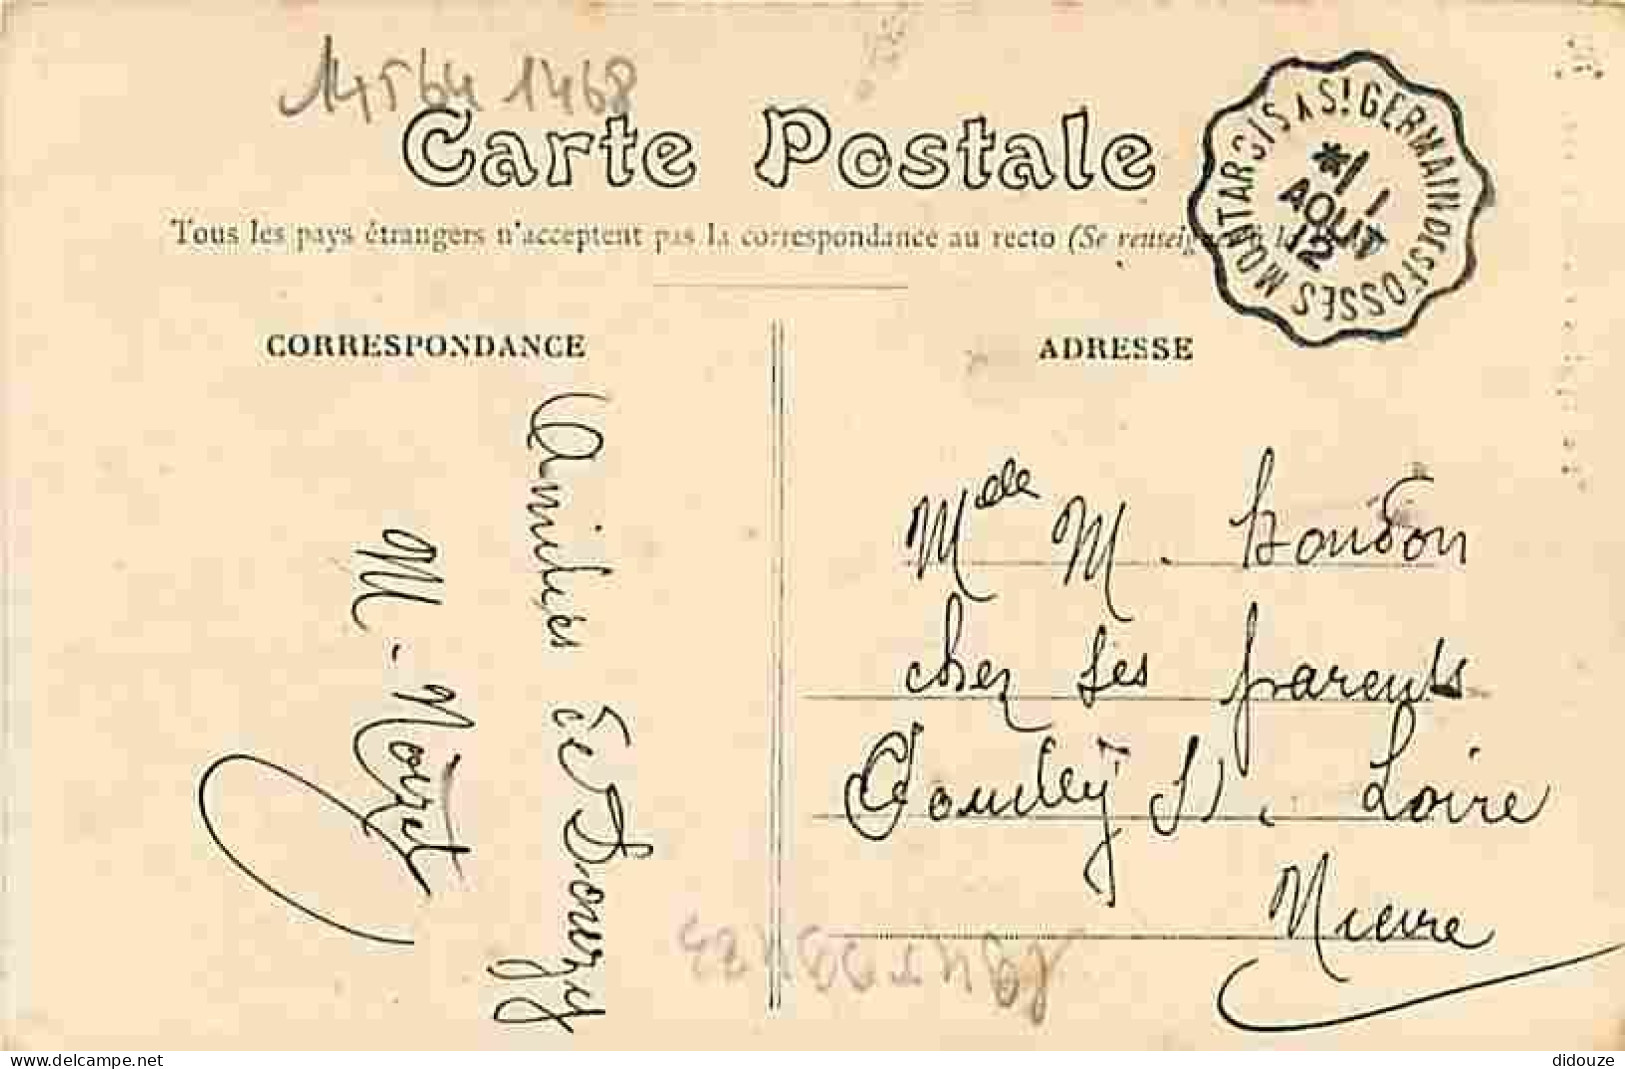 14564 1468
Carte Postale
Tous les pays étrangers n'acceptent pas la correspondance au recto (Se renseigner à la
MONTARGIS A St GERMAIN DES FOSSES
*1
AOUT
12
CORRESPONDANCE
Amitiés de Douzy
M. Nozet
ADRESSE
Mde M. Houdon
chez ses parents
Pouilly S. Loire
Nièvre
delcampe.net
didouze